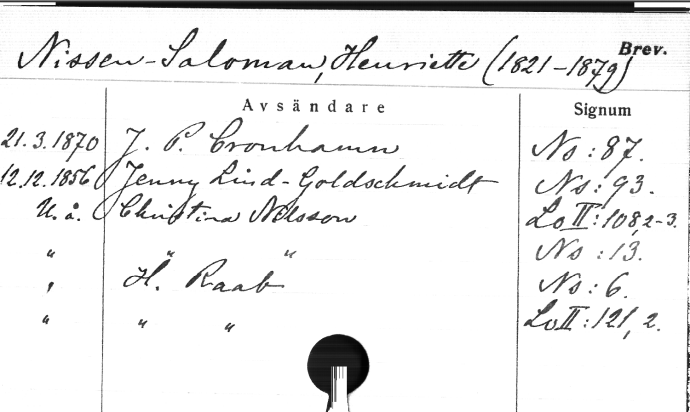 Brev.
Nissen-Saloman, Henriette (1821-1879)
Avsändare Signum
21.3.1870 J. P. Cronhamn No: 87.
12.12.1856 Jenny Lind-Goldschmidt No: 93.
U. å. Christina Nilsson Lo II: 108, 2-3.
" " " No: 13.
" H. Raab No: 6.
" " " Lo II: 121, 2.